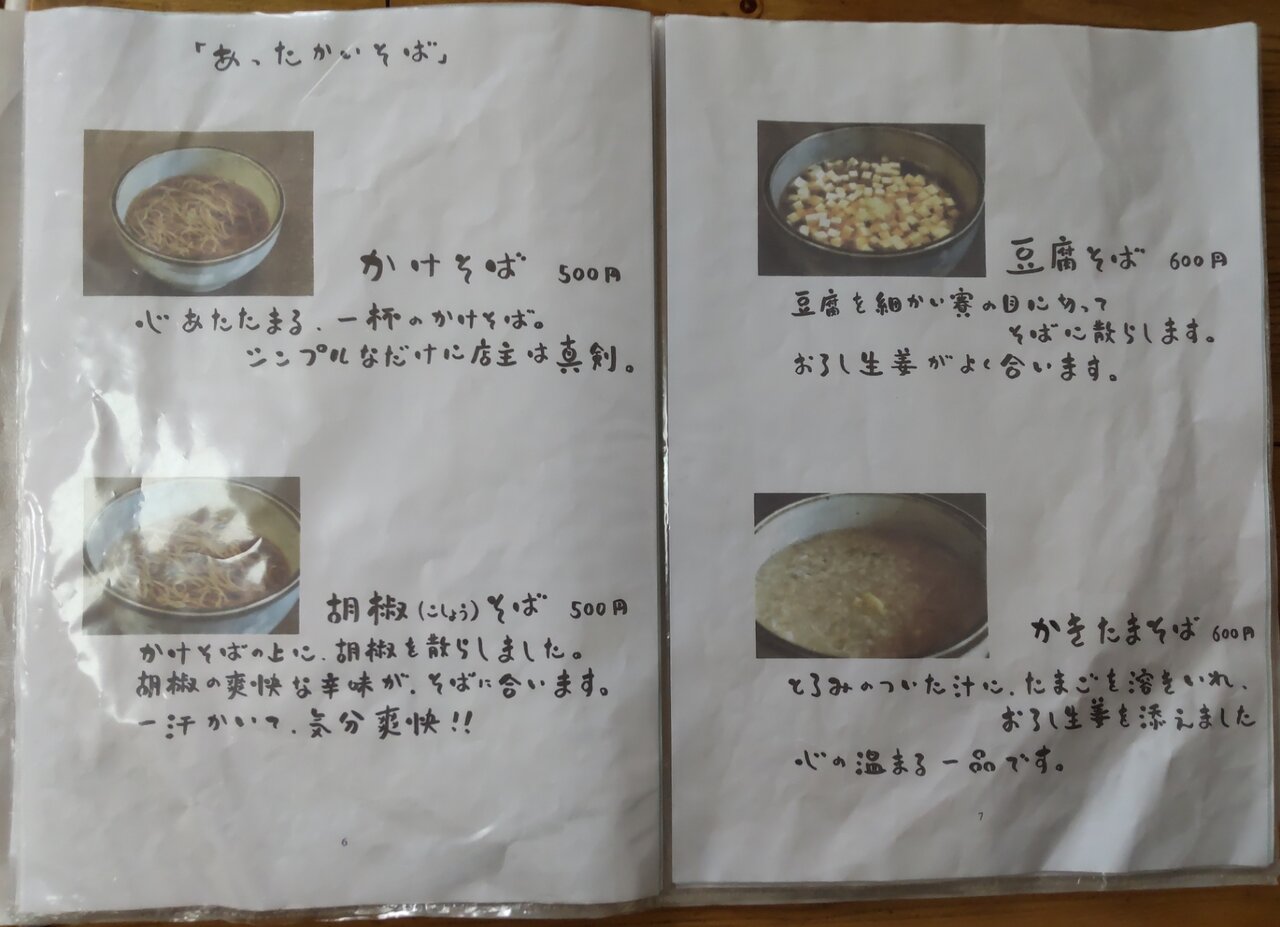 「あったかいそば」
かけそば 500円
心あたたまる、一杯のかけそば。
シンプルなだけに店主は真剣。
胡椒(こしょう)そば 500円
かけそばの上に、胡椒を散らしました。
胡椒の爽快な辛味が、そばに合います。
一汗かいて、気分爽快!!
6
豆腐そば 600円
豆腐を細かい賽の目に切って
そばに散らします。
おろし生姜がよく合います。
かきたまそば 600円
とろみのついた汁に、たまごを溶きいれ、
おろし生姜を添えました
心の温まる一品です。
7